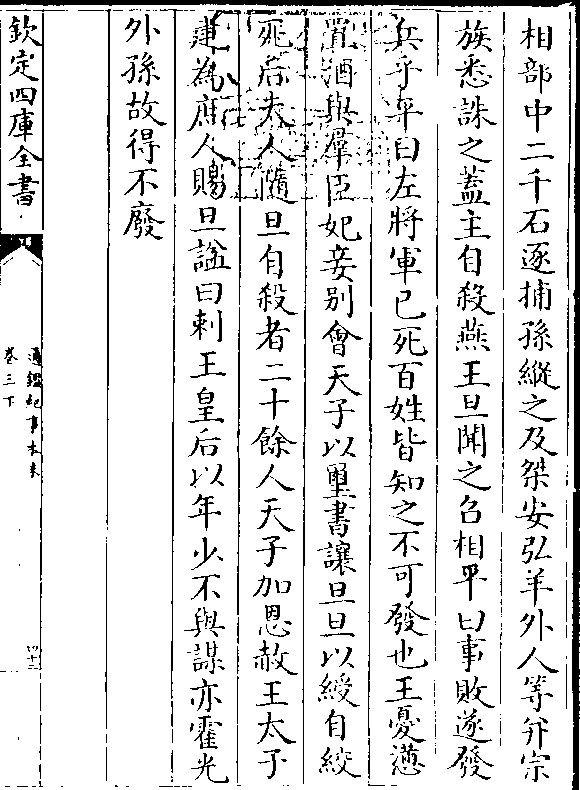 相部中二千石逐捕孫縱之及桀安弘羊外人等并宗
族悉誅之蓋主自殺燕王旦聞之召相平曰事敗遂發
兵乎平曰左將軍已死百姓皆知之不可發也王憂懣
置酒與羣臣妃妾别會天子以璽書讓旦旦以綬自絞
死后夫人隨旦自殺者二十餘人天子加恩赦王太子
建為庶人賜旦諡曰刺王皇后以年少不與謀亦霍光
外孫故得不廢
欽定四庫全書
通鑑紀事本末
卷三下